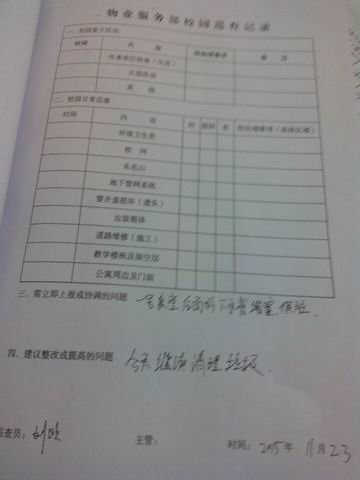 物业服务部校园巡查记录
一、校园重大活动
时间 内 容 待处理事项 备 注
大型活动
其 他
二、校园日常巡查
时间 内 容 好 较好 差 待处理事项（具体区域）
环境卫生类
校 河
至名山
地下管网系统
窨井盖损坏（遗失）
垃圾箱体
道路维修（施工）
教学楼栋及架空层
公寓周边及门面
三、需立即上报或协调的问题 食堂后面的下水管堵塞
四、建议整改或提高的问题 今天继续清理垃圾
巡查员： 主管： 时间：2015年11月23